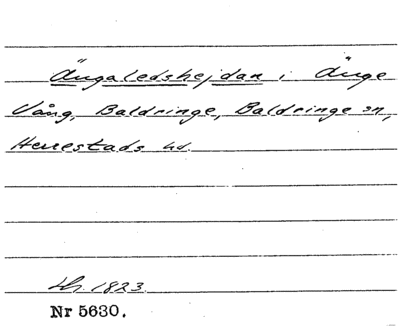 Ängaledshejdan i Änge
Vång, Baldringe, Baldringe sn,
Herrestads hd.
Hs. 1823.
Nr 5630.